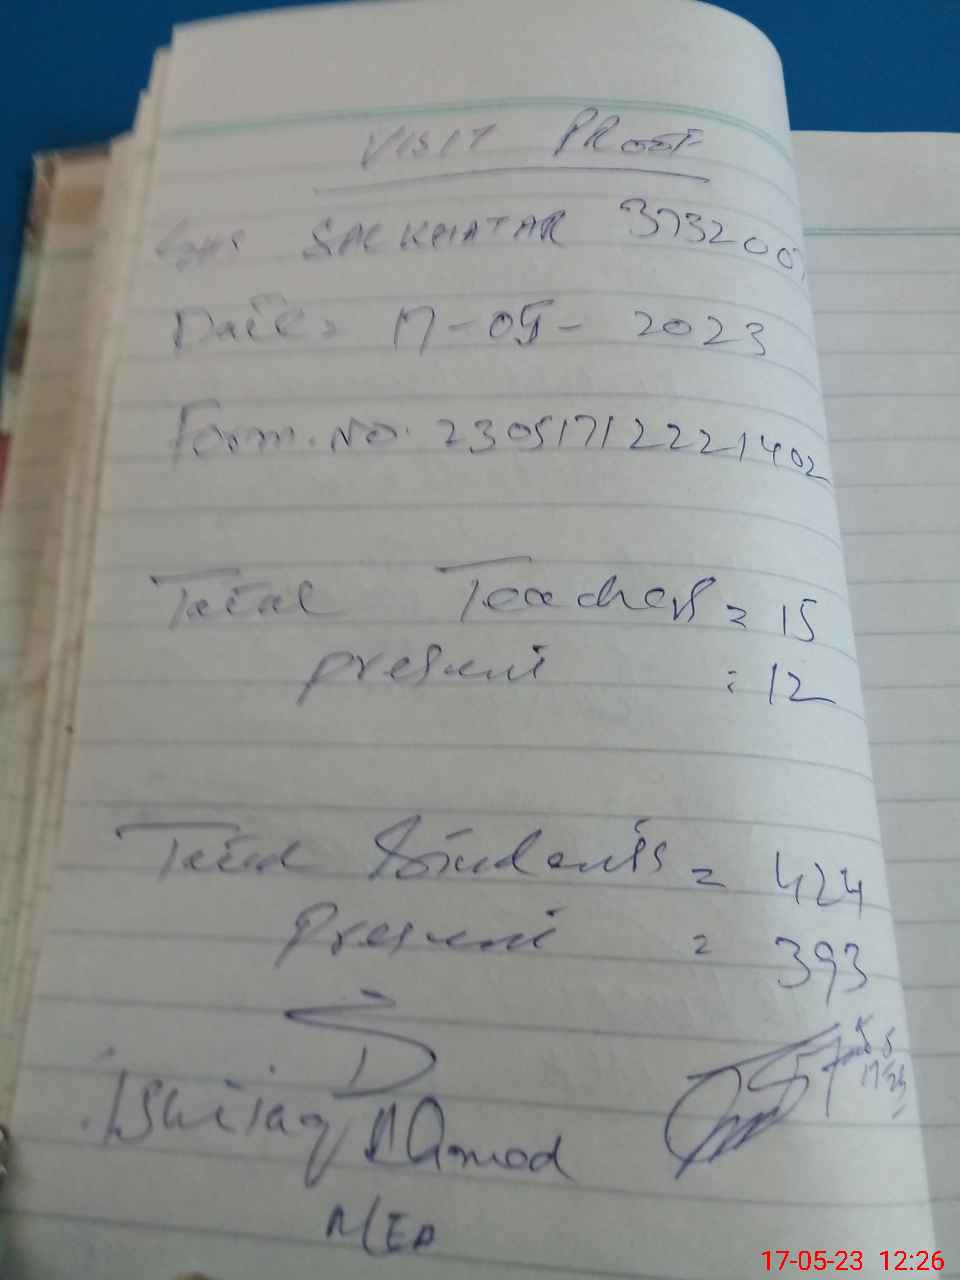 VISIT PROOF
GHS SALKHATAR 3732007
Date = 17-05-2023
Form. No. 230517122221402
Total Teachers = 15
present : 12
Total Students = 424
present = 393
Ishtiaq Ahmad
MEA
17-05-23 12:26